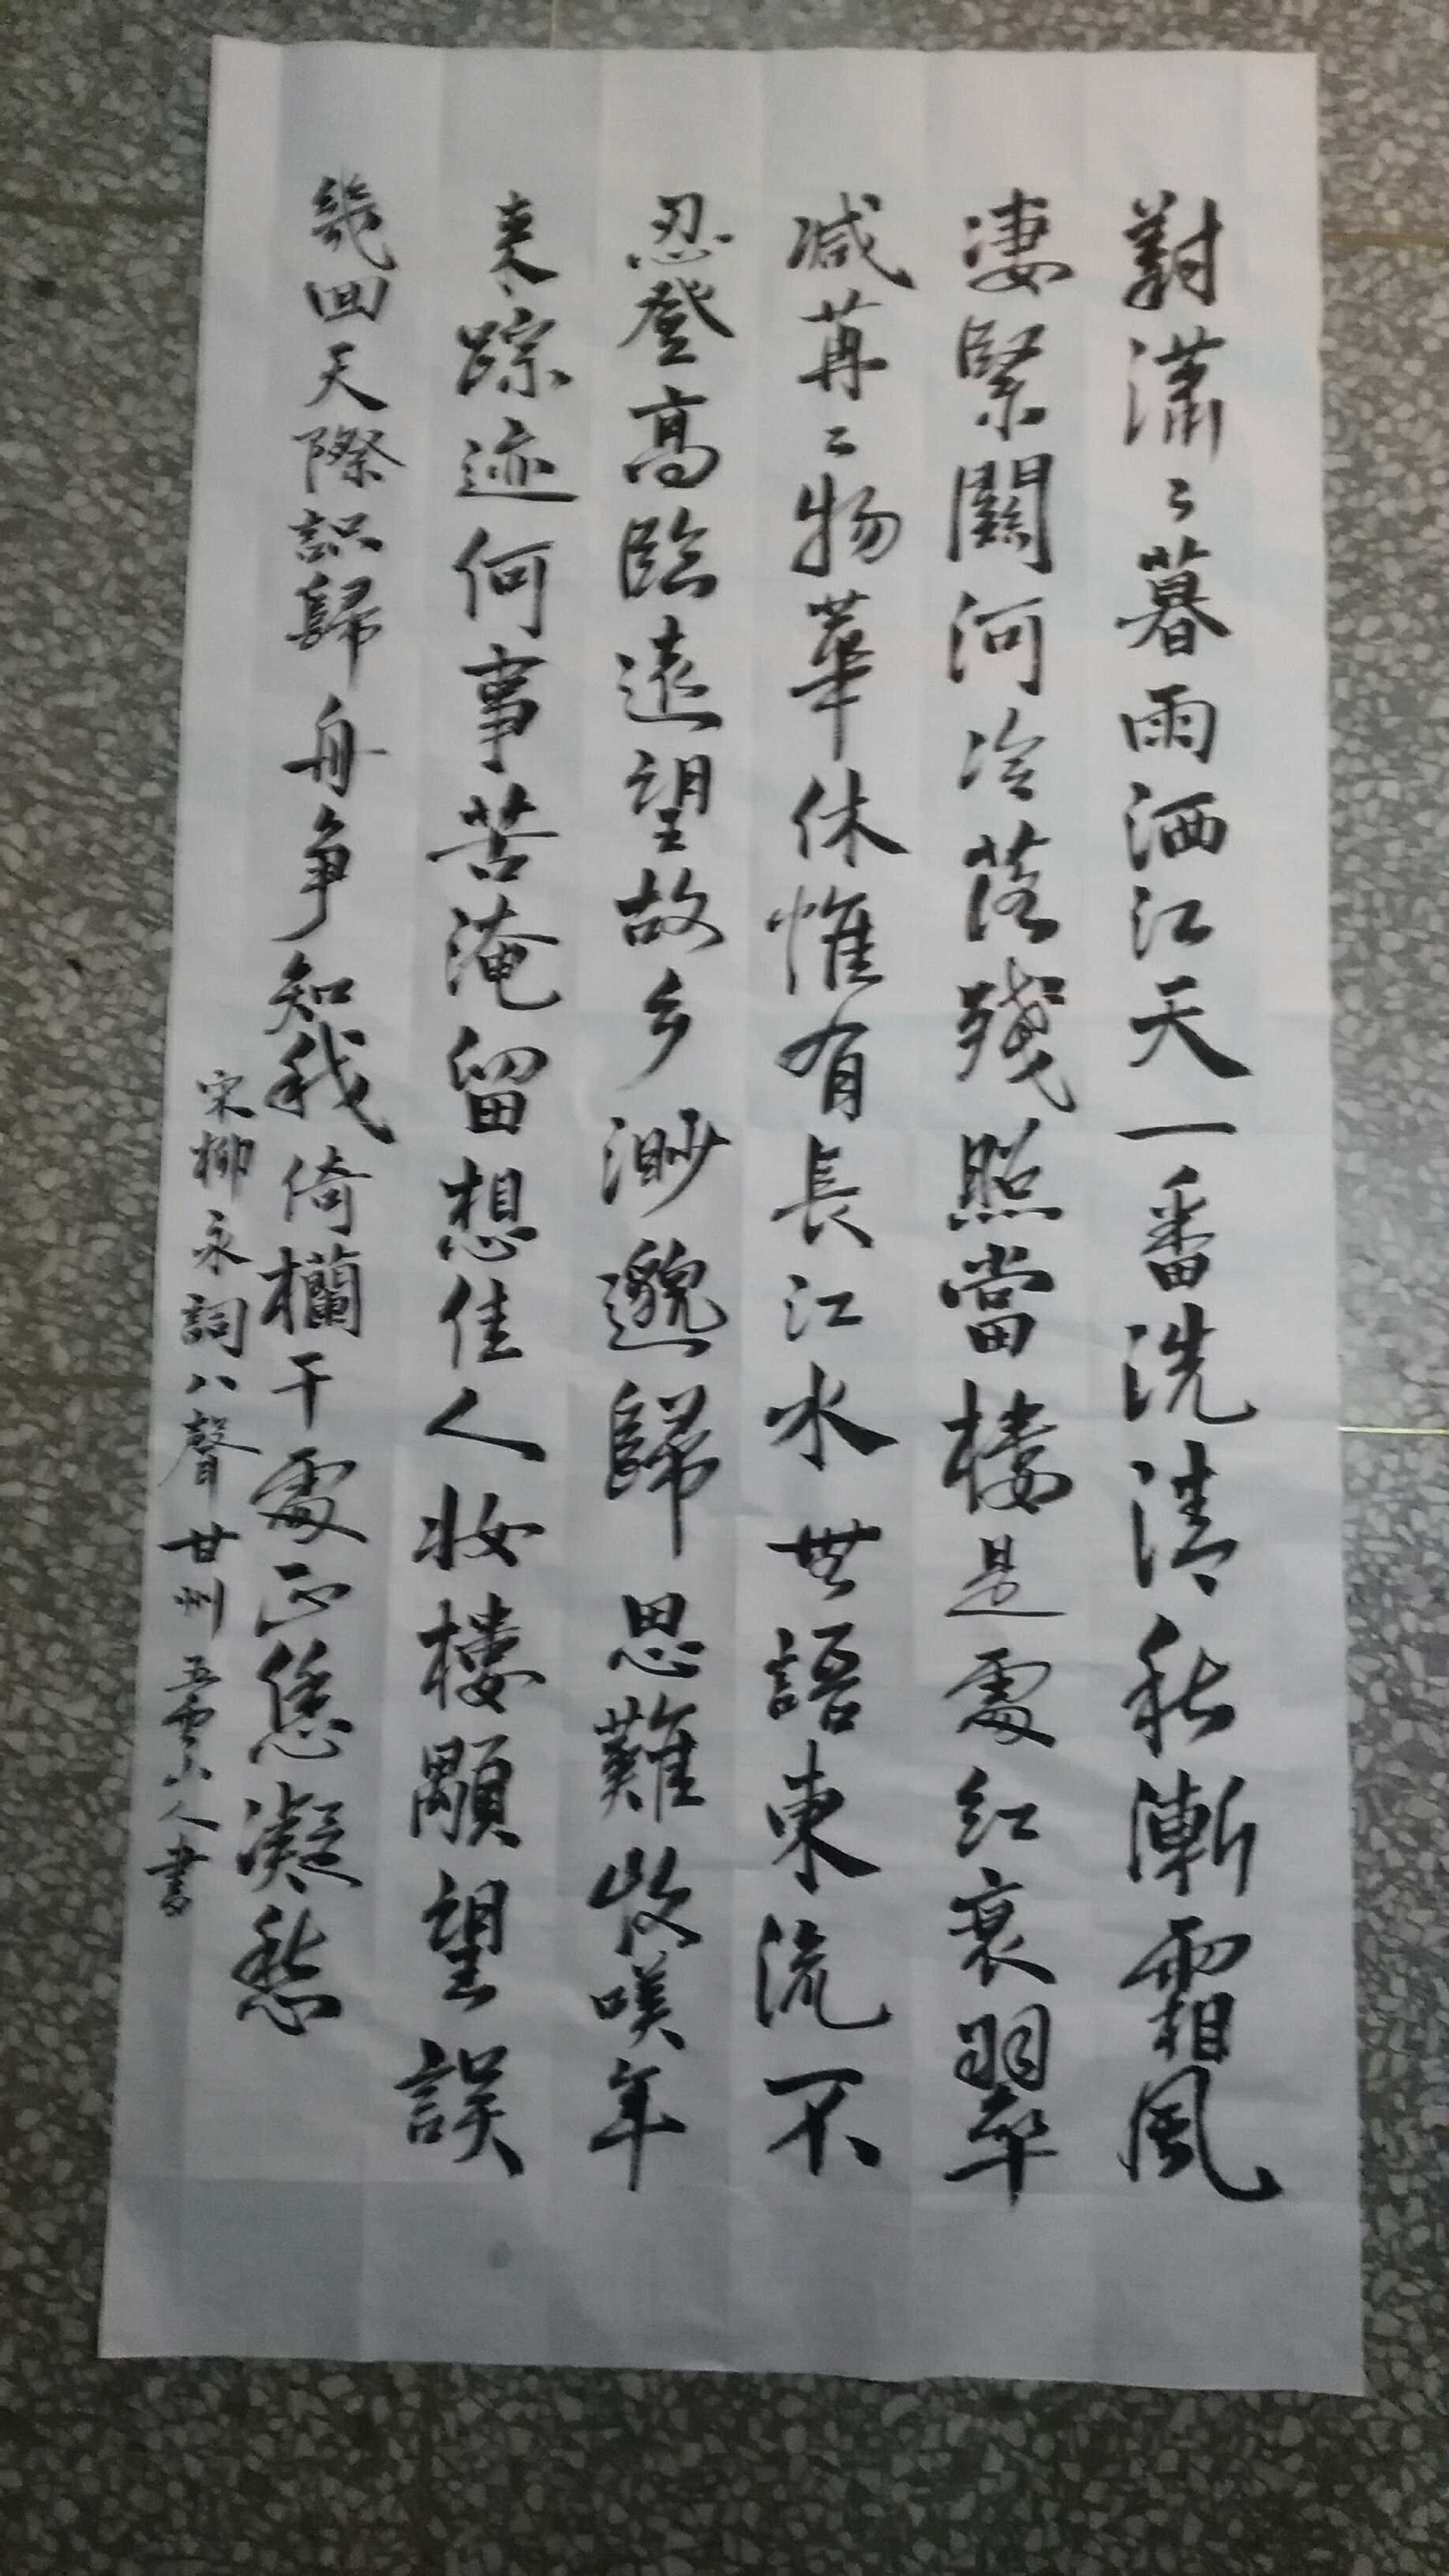 對瀟〻暮雨洒江天一番洗清秋漸霜風
凄緊關河冷落殘照當樓是處紅衰翠
减苒〻物華休惟有長江水無語東流不
忍登高臨遠望故乡渺邈歸思難收嘆年
来踪迹何事苦淹留想佳人妝樓顒望誤
幾回天際識歸舟争知我倚欄干處正恁凝愁
宋柳永詞八聲甘州五雲山人書